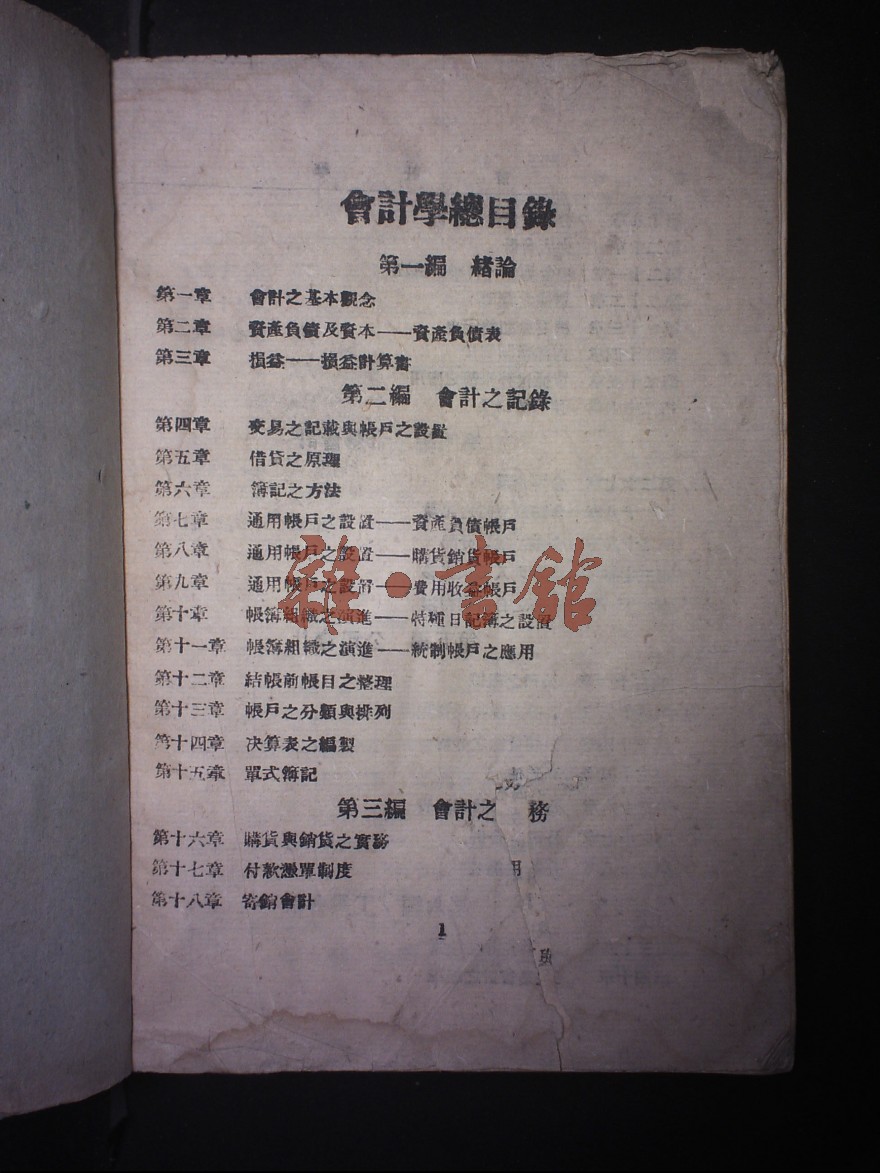 會計學總目錄
第一編 緒論
第一章 會計之基本觀念
第二章 資產負債及資本——資產負債表
第三章 損益——損益計算書
第二編 會計之記錄
第四章 交易之記載與帳戶之設置
第五章 借貸之原理
第六章 簿記之方法
第七章 通用帳戶之設置——資產負債帳戶
第八章 通用帳戶之設置——購貨銷貨帳戶
第九章 通用帳戶之設置——費用收益帳戶
第十章 帳簿組織之演進——特種日記簿之設置
第十一章 帳簿組織之演進——統制帳戶之應用
第十二章 結帳前帳目之整理
第十三章 帳戶之分類與排列
第十四章 决算表之編製
第十五章 單式簿記
第三編 會計之 務
第十六章 購貨與銷貨之實務
第十七章 付款憑單制度
用
第十八章 寄銷會計
1
雜·書館